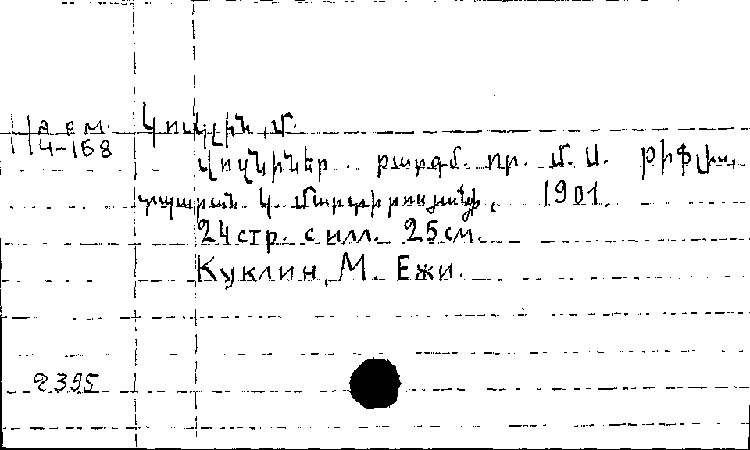 Կուկլին, Մ.
Ч-168
Ոզնիներ. թարգմ. որ. Մ. Ա. Թիֆլիս,
տպարան Կ. Մարտիրոսյանի, 1901.
24 стр. с илл. 25 см.
Куклин, М. Ежи.
2395